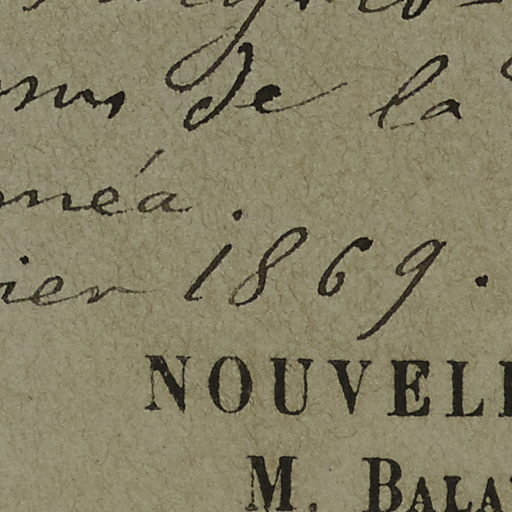 de la
méa.
ier 1869.
NOUVEL
M. BALA